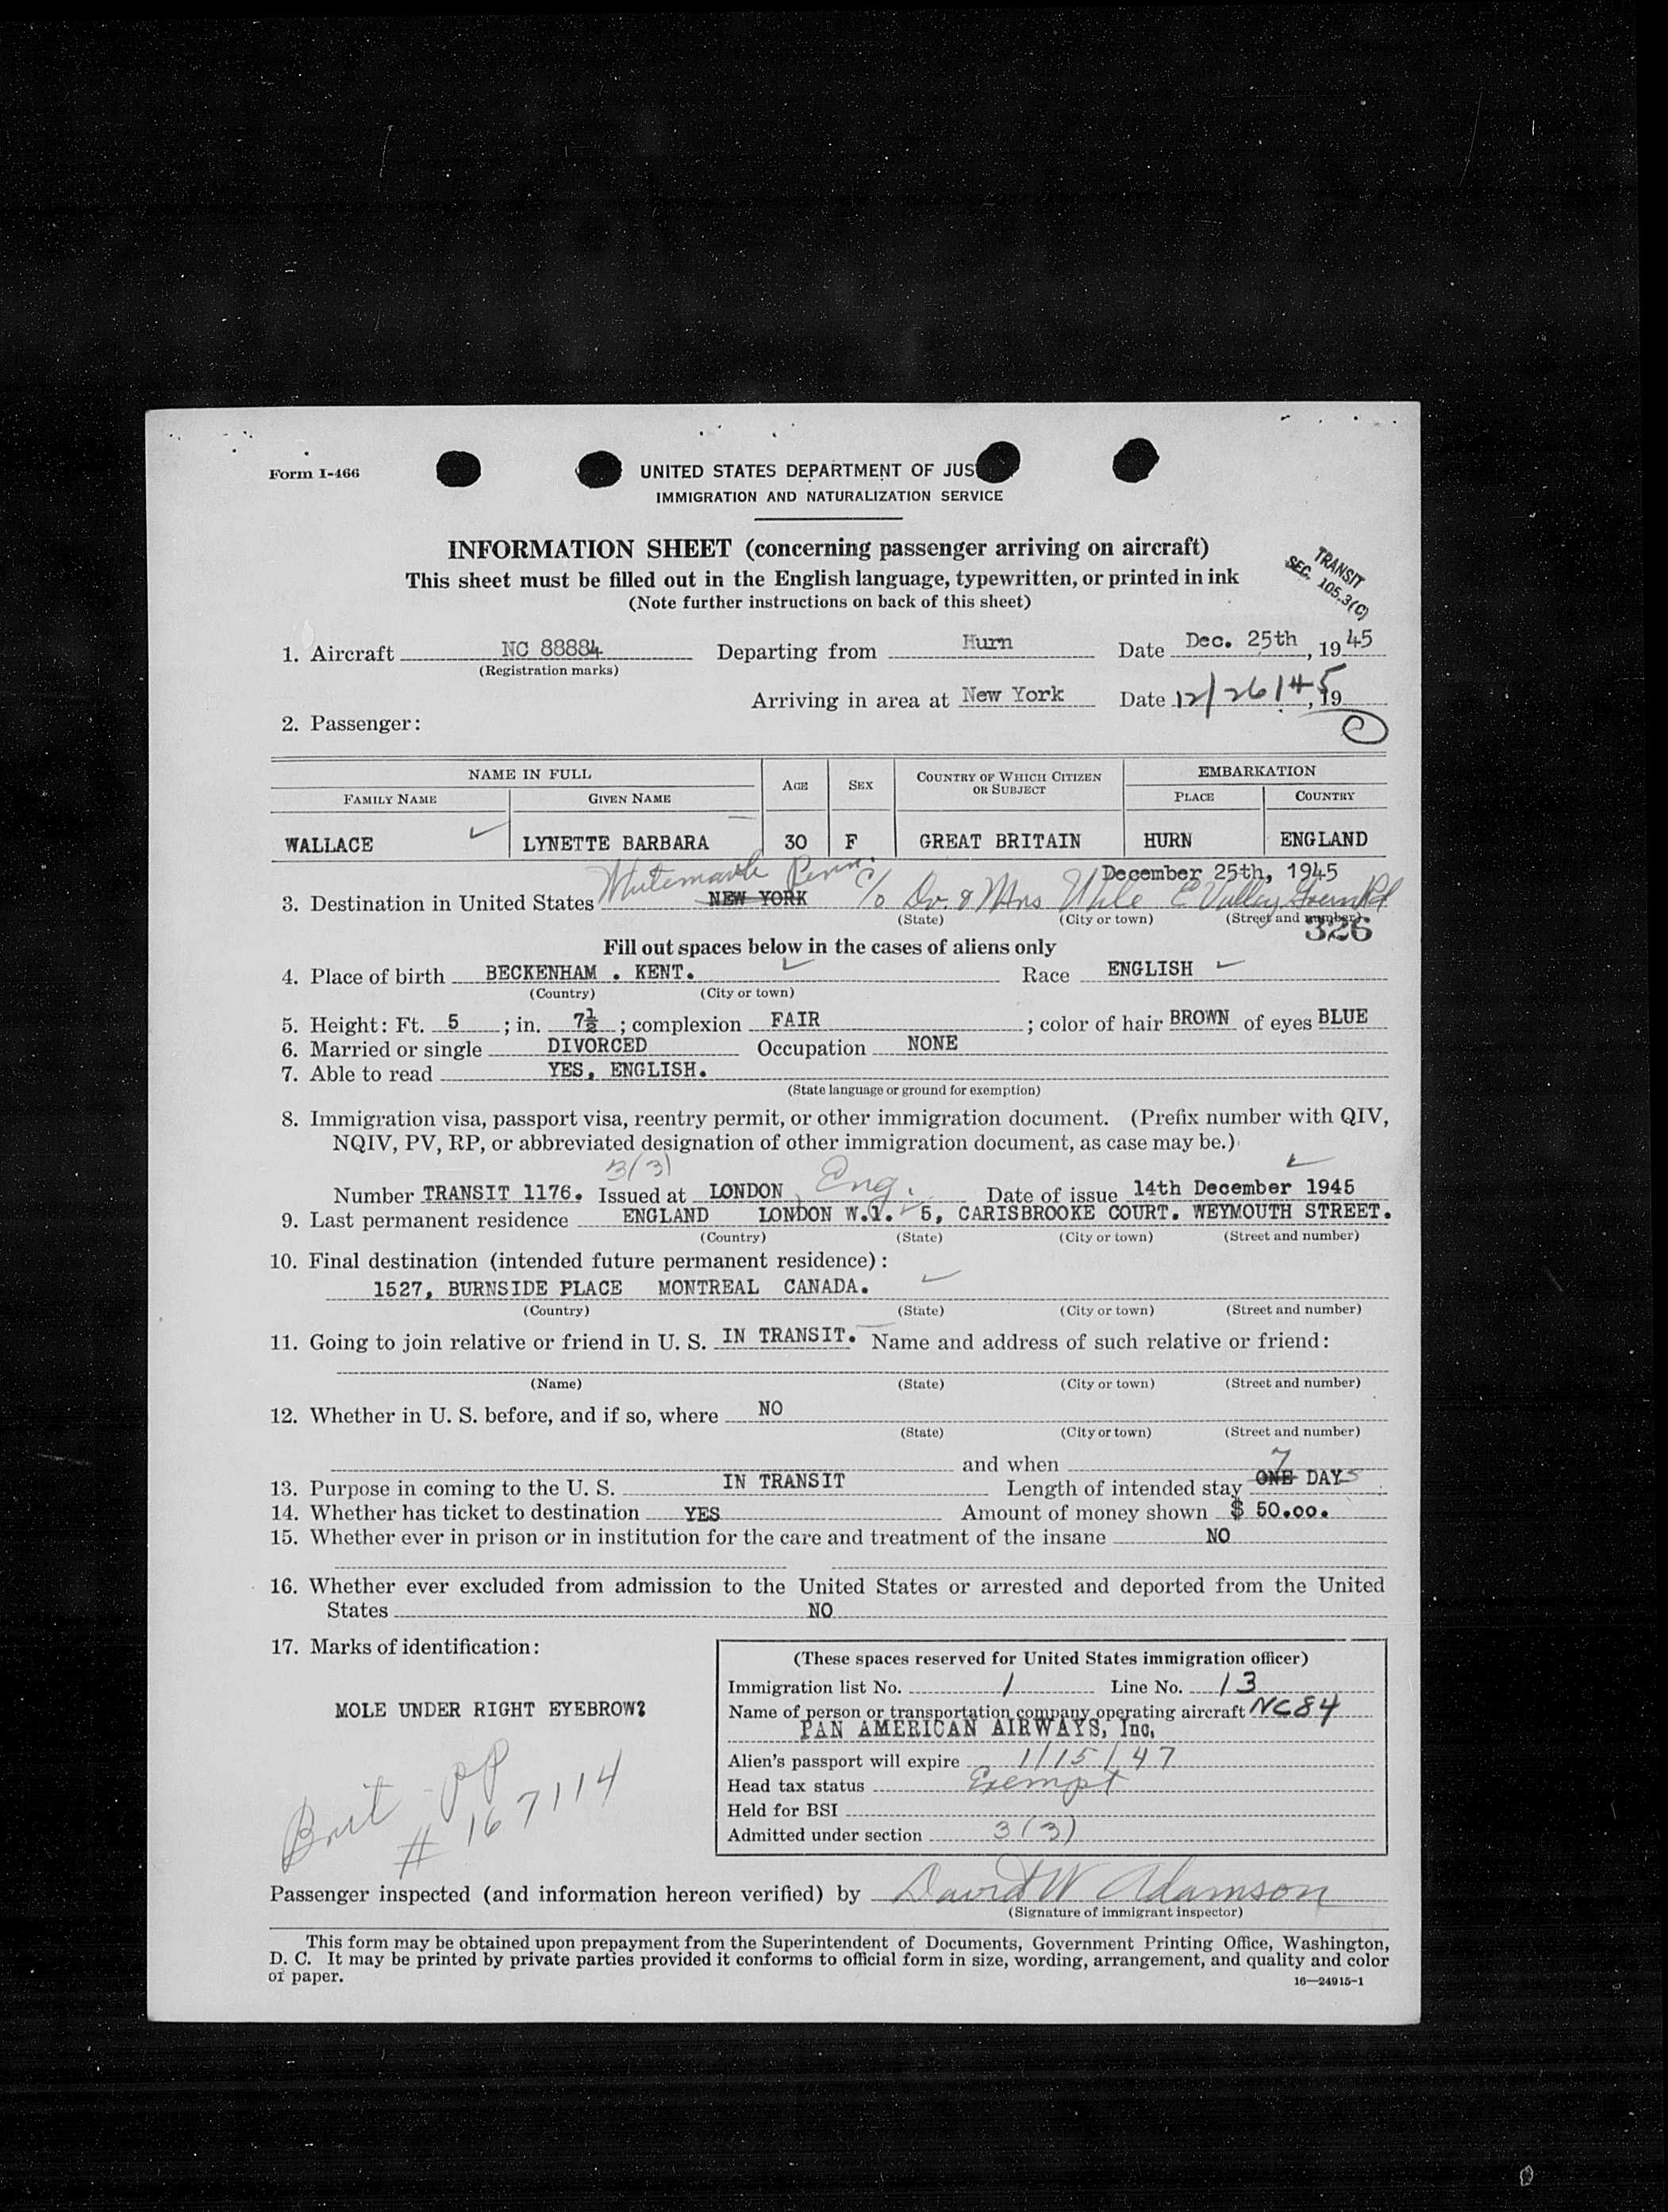 Form I-466
UNITED STATES DEPARTMENT OF JUS
IMMIGRATION AND NATURALIZATION SERVICE
INFORMATION SHEET (concerning passenger arriving on aircraft)
This sheet must be filled out in the English language, typewritten, or printed in ink
(Note further instructions on back of this sheet)
TRANSIT
SEC. 105.3(C)
1. Aircraft NC 88884 Departing from Hurn Date Dec. 25th, 1945
(Registration marks)
Arriving in area at New York Date 12/26/45, 19
2. Passenger:
NAME IN FULL AGE SEX COUNTRY OF WHICH CITIZEN OR SUBJECT EMBARKATION
FAMILY NAME GIVEN NAME PLACE COUNTRY
WALLACE LYNETTE BARBARA 30 F GREAT BRITAIN HURN ENGLAND
December 25th, 1945
3. Destination in United States NEW YORK Penn. c/o Dr. & Mrs E Valley Green Rd
(State) (City or town) (Street and number)
326
Fill out spaces below in the cases of aliens only
4. Place of birth BECKENHAM . KENT. Race ENGLISH
(Country) (City or town)
5. Height: Ft. 5 ; in. 7½ ; complexion FAIR ; color of hair BROWN of eyes BLUE
6. Married or single DIVORCED Occupation NONE
7. Able to read YES, ENGLISH.
(State language or ground for exemption)
8. Immigration visa, passport visa, reentry permit, or other immigration document. (Prefix number with QIV,
NQIV, PV, RP, or abbreviated designation of other immigration document, as case may be.)
3(3)
Number TRANSIT 1176. Issued at LONDON, Eng. Date of issue 14th December 1945
9. Last permanent residence ENGLAND LONDON W.1. 5, CARISBROOKE COURT. WEYMOUTH STREET.
(Country) (State) (City or town) (Street and number)
10. Final destination (intended future permanent residence):
1527, BURNSIDE PLACE MONTREAL CANADA.
(Country) (State) (City or town) (Street and number)
11. Going to join relative or friend in U. S. IN TRANSIT. Name and address of such relative or friend:
(Name) (State) (City or town) (Street and number)
12. Whether in U. S. before, and if so, where NO
(State) (City or town) (Street and number)
and when
13. Purpose in coming to the U. S. IN TRANSIT Length of intended stay ONE 7 DAYS
14. Whether has ticket to destination YES Amount of money shown $ 50.00.
15. Whether ever in prison or in institution for the care and treatment of the insane NO
16. Whether ever excluded from admission to the United States or arrested and deported from the United
States NO
17. Marks of identification:
MOLE UNDER RIGHT EYEBROW?
Brit PP
# 167114
(These spaces reserved for United States immigration officer)
Immigration list No. 1 Line No. 13
Name of person or transportation company operating aircraft NC84
PAN AMERICAN AIRWAYS, Inc.
Alien's passport will expire 1/15/47
Head tax status Exempt
Held for BSI
Admitted under section 3(3)
Passenger inspected (and information hereon verified) by David W Adamson
(Signature of immigrant inspector)
This form may be obtained upon prepayment from the Superintendent of Documents, Government Printing Office, Washington,
D. C. It may be printed by private parties provided it conforms to official form in size, wording, arrangement, and quality and color
of paper.
16—24915-1